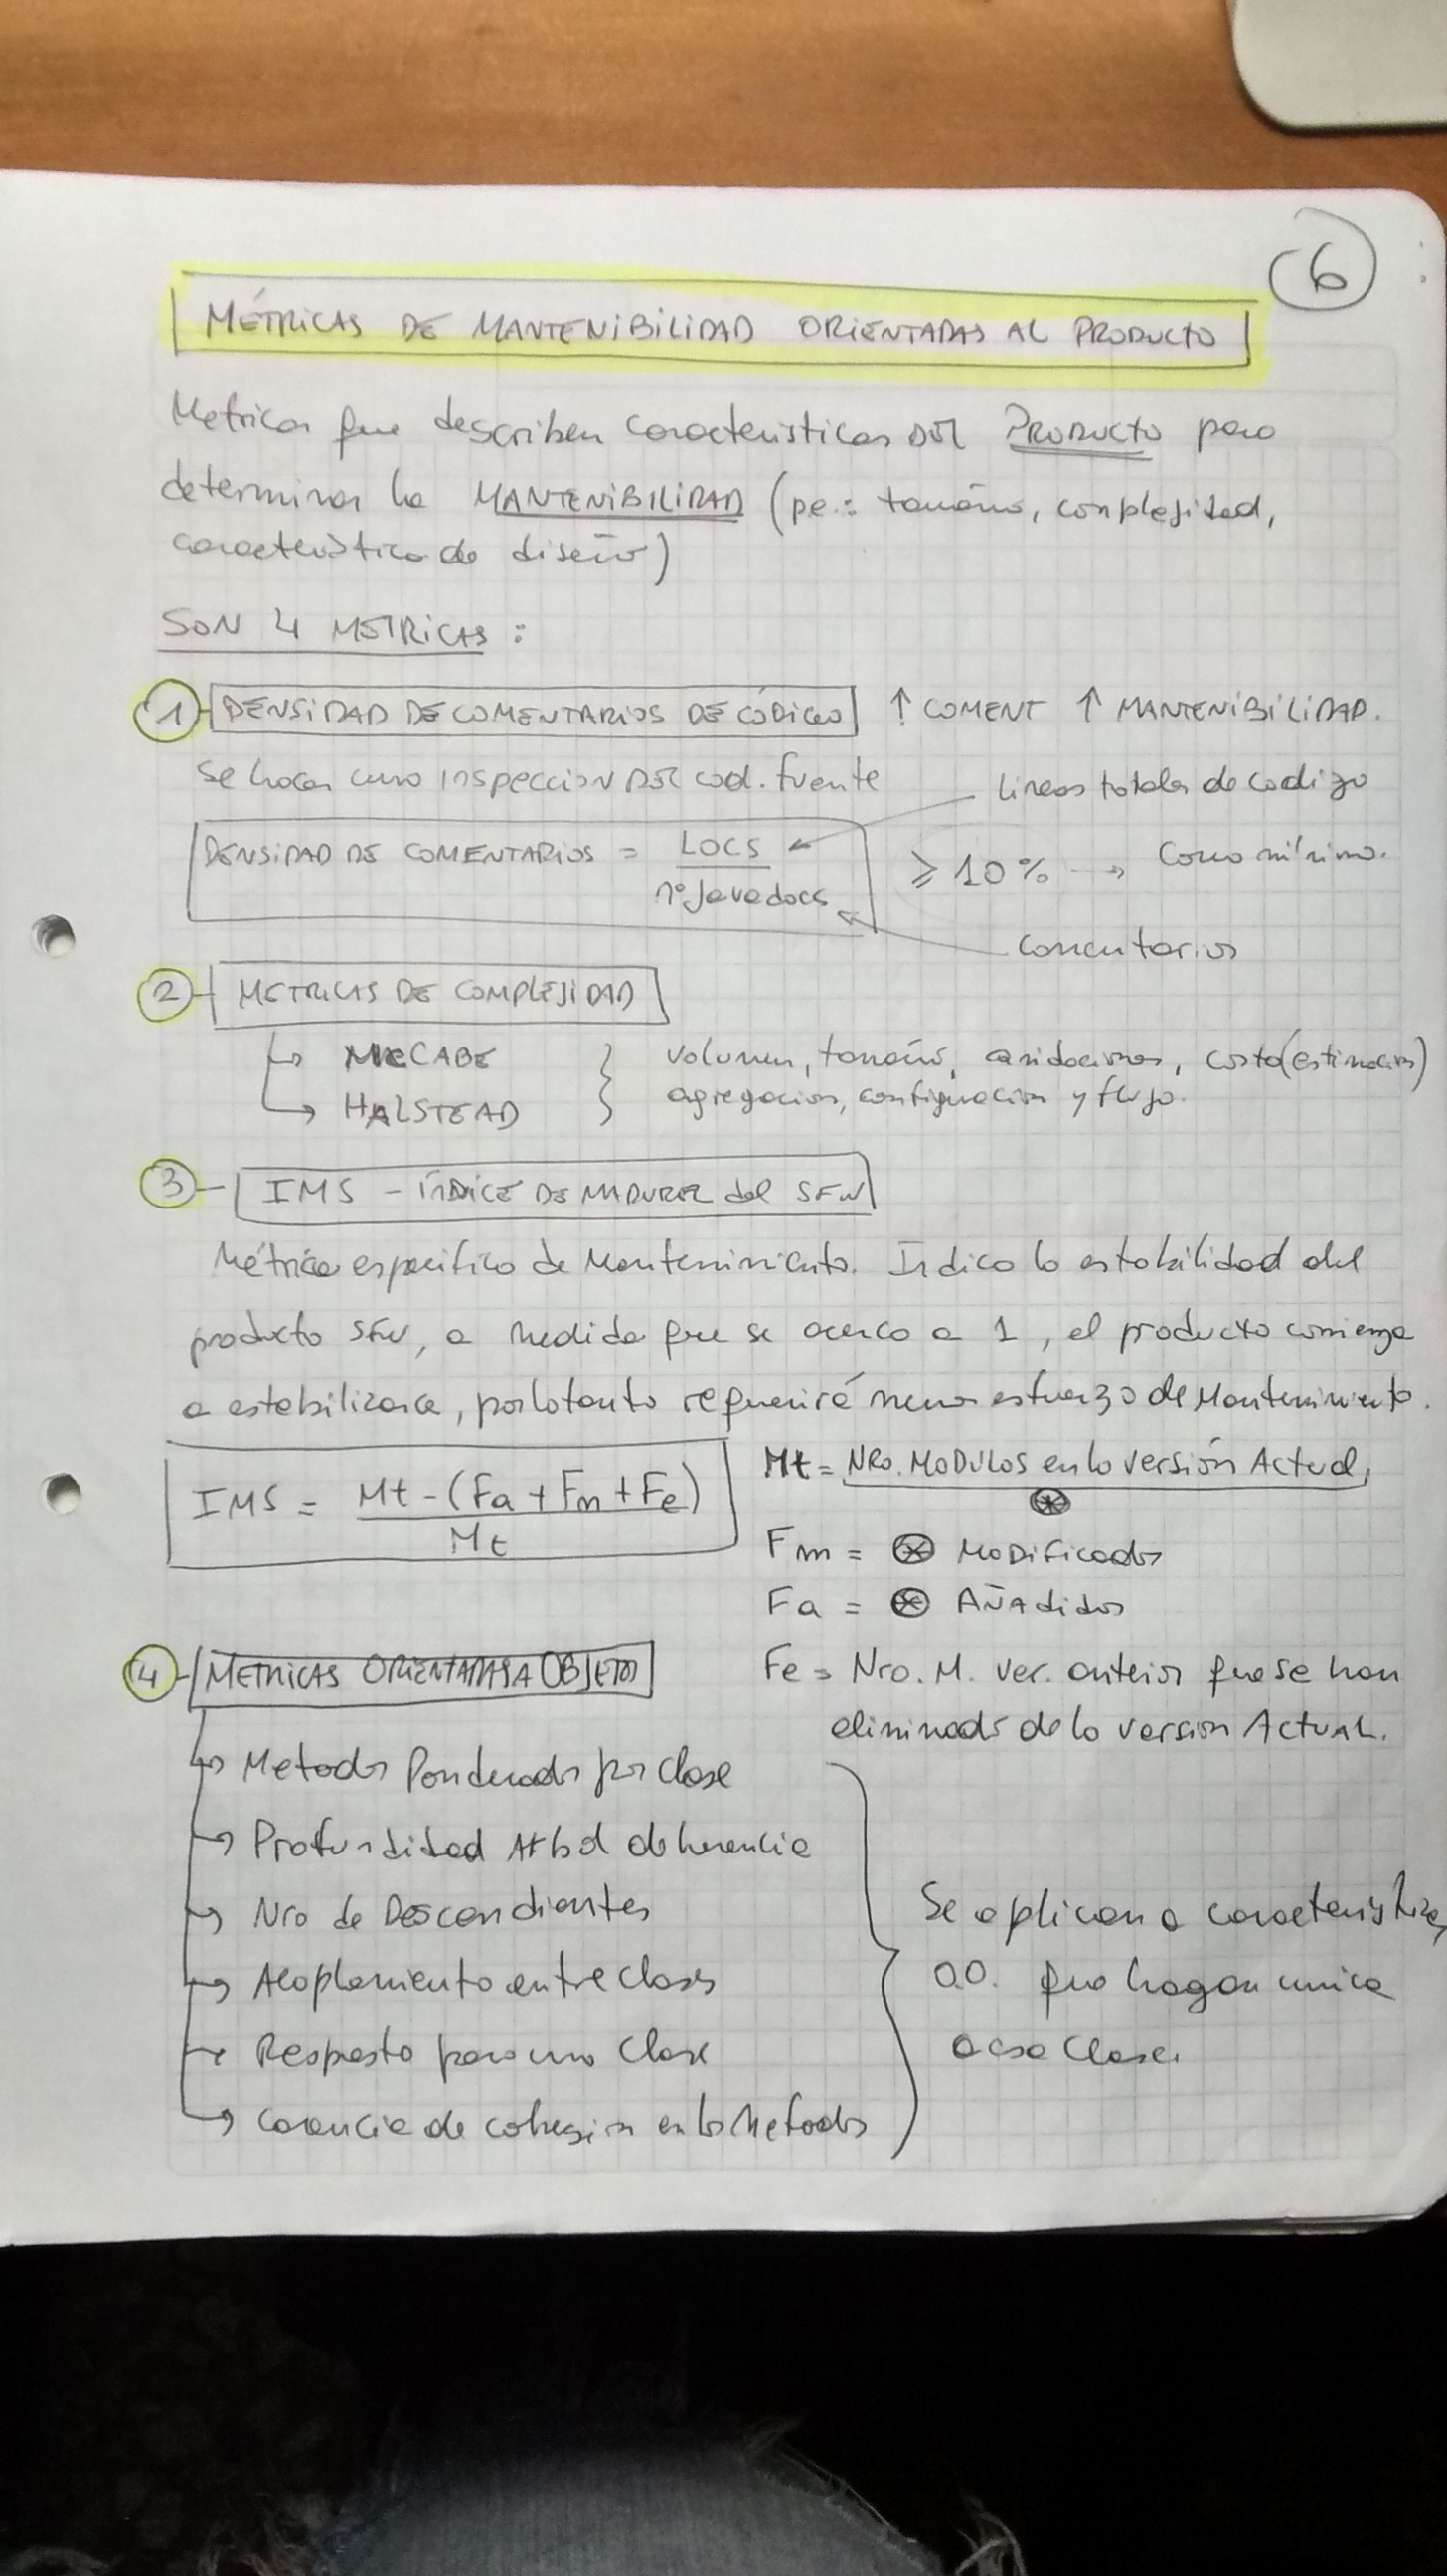 6
MÉTRICAS DE MANTENIBILIDAD ORIENTADAS AL PRODUCTO
Metricas que describen caracteristicas DEL PRODUCTO para
determinar la MANTENIBILIDAD (pe.: tamaño, complejidad,
caracteristica de diseño)
SON 4 METRICAS:
1 DENSIDAD DE COMENTARIOS DE CÓDIGO ↑ COMENT ↑ MANTENIBILIDAD.
Se hacen una INSPECCION DEL cod. fuente
Lineas totales de codigo
DENSIDAD DE COMENTARIOS = LOCS / nº Javadocs ≥ 10% → Como mínimo.
comentarios
2 METRICAS DE COMPLEJIDAD
↳ McCABE } volumen, tamaño, anidaciones, costo (estimacion)
↳ HALSTEAD } agregacion, configuracion y flujo.
3 IMS - ÍNDICE DE MADUREZ del SFW
Métrica especifica de Mantenimiento. Indica la estabilidad del
producto SFW, a medida que se acerca a 1, el producto comienza
a estabilizarse, por lo tanto requerirá menos esfuerzo de Mantenimiento.
IMS = Mt - (Fa + Fm + Fe) / Mt
Mt = NRO. MODULOS en la versión Actual,
⊛
Fm = ⊛ MODificados
Fa = ⊛ AÑadidos
Fe = Nro. M. ver. anterior que se han
eliminado de la version ActuAL.
4 METRICAS ORIENTADAS A OBJETOS
↳ Metodos Ponderados por Clase
→ Profundidad Arbol de herencia
→ Nro de Descendientes
→ Acoplamiento entre clases
→ Respuesta para una Clase
↳ Carencia de cohesion en los Metodos
Se aplican a caracteristicas
O.O. que hagan unica
a esa Clase.